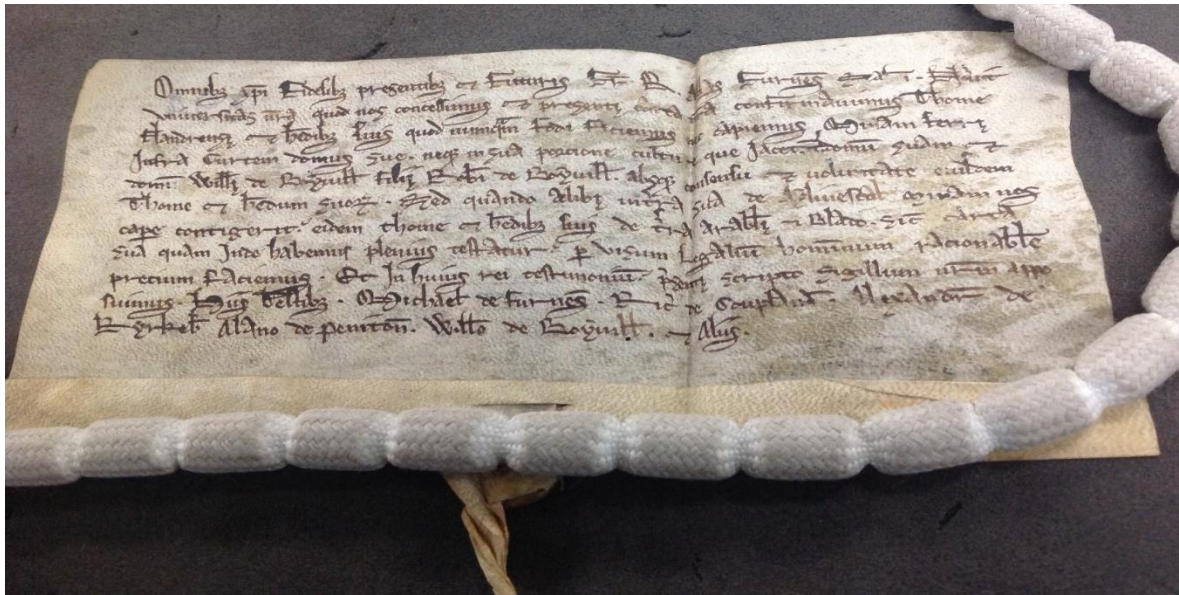 Omnibȝ xp̄i Fidelibȝ presentibȝ et Futuris Fr̄ R Abbas Furneȝ Salt̄. Nov̄int
universitas vr̄a quod nos concessimus et presenti carta nr̄a confirmavimus Thome
Flandrensi et h̄edibȝ suis quod numq̄m Fodi Faciemus capiemus Minam Ferri
Infra Curtem domus sue. neqȝ in sua porcione culture que Jacet domū suam et
domū Willi de Boyvill̄ Filii Rob̄i de Boyvill̄ absqȝ consensu et voluntate eiusdem
Thome et h̄edum suorȝ. Sed quando Alibi infra villa de minam nos
cap̄e contigerit. eidem thome et h̄edibȝ suis de tr̄a arabili et Blato. sic̄ carta
sua quam Inde habemus plenius testatur. p̱ visum Legaliū hominum racionabile
precium Faciemus. Et In huius rei testimoniū. p̄senti scripto Sigillum nr̄m appo
suimus. Hiis Testibȝ. Michael de Furneȝ. Ric̄ de Coupland̄. Alexandr̄ de
Kyrkeb̄ Alano de Penitoñ. Will̄o de Boyvill̄. et Aliis.